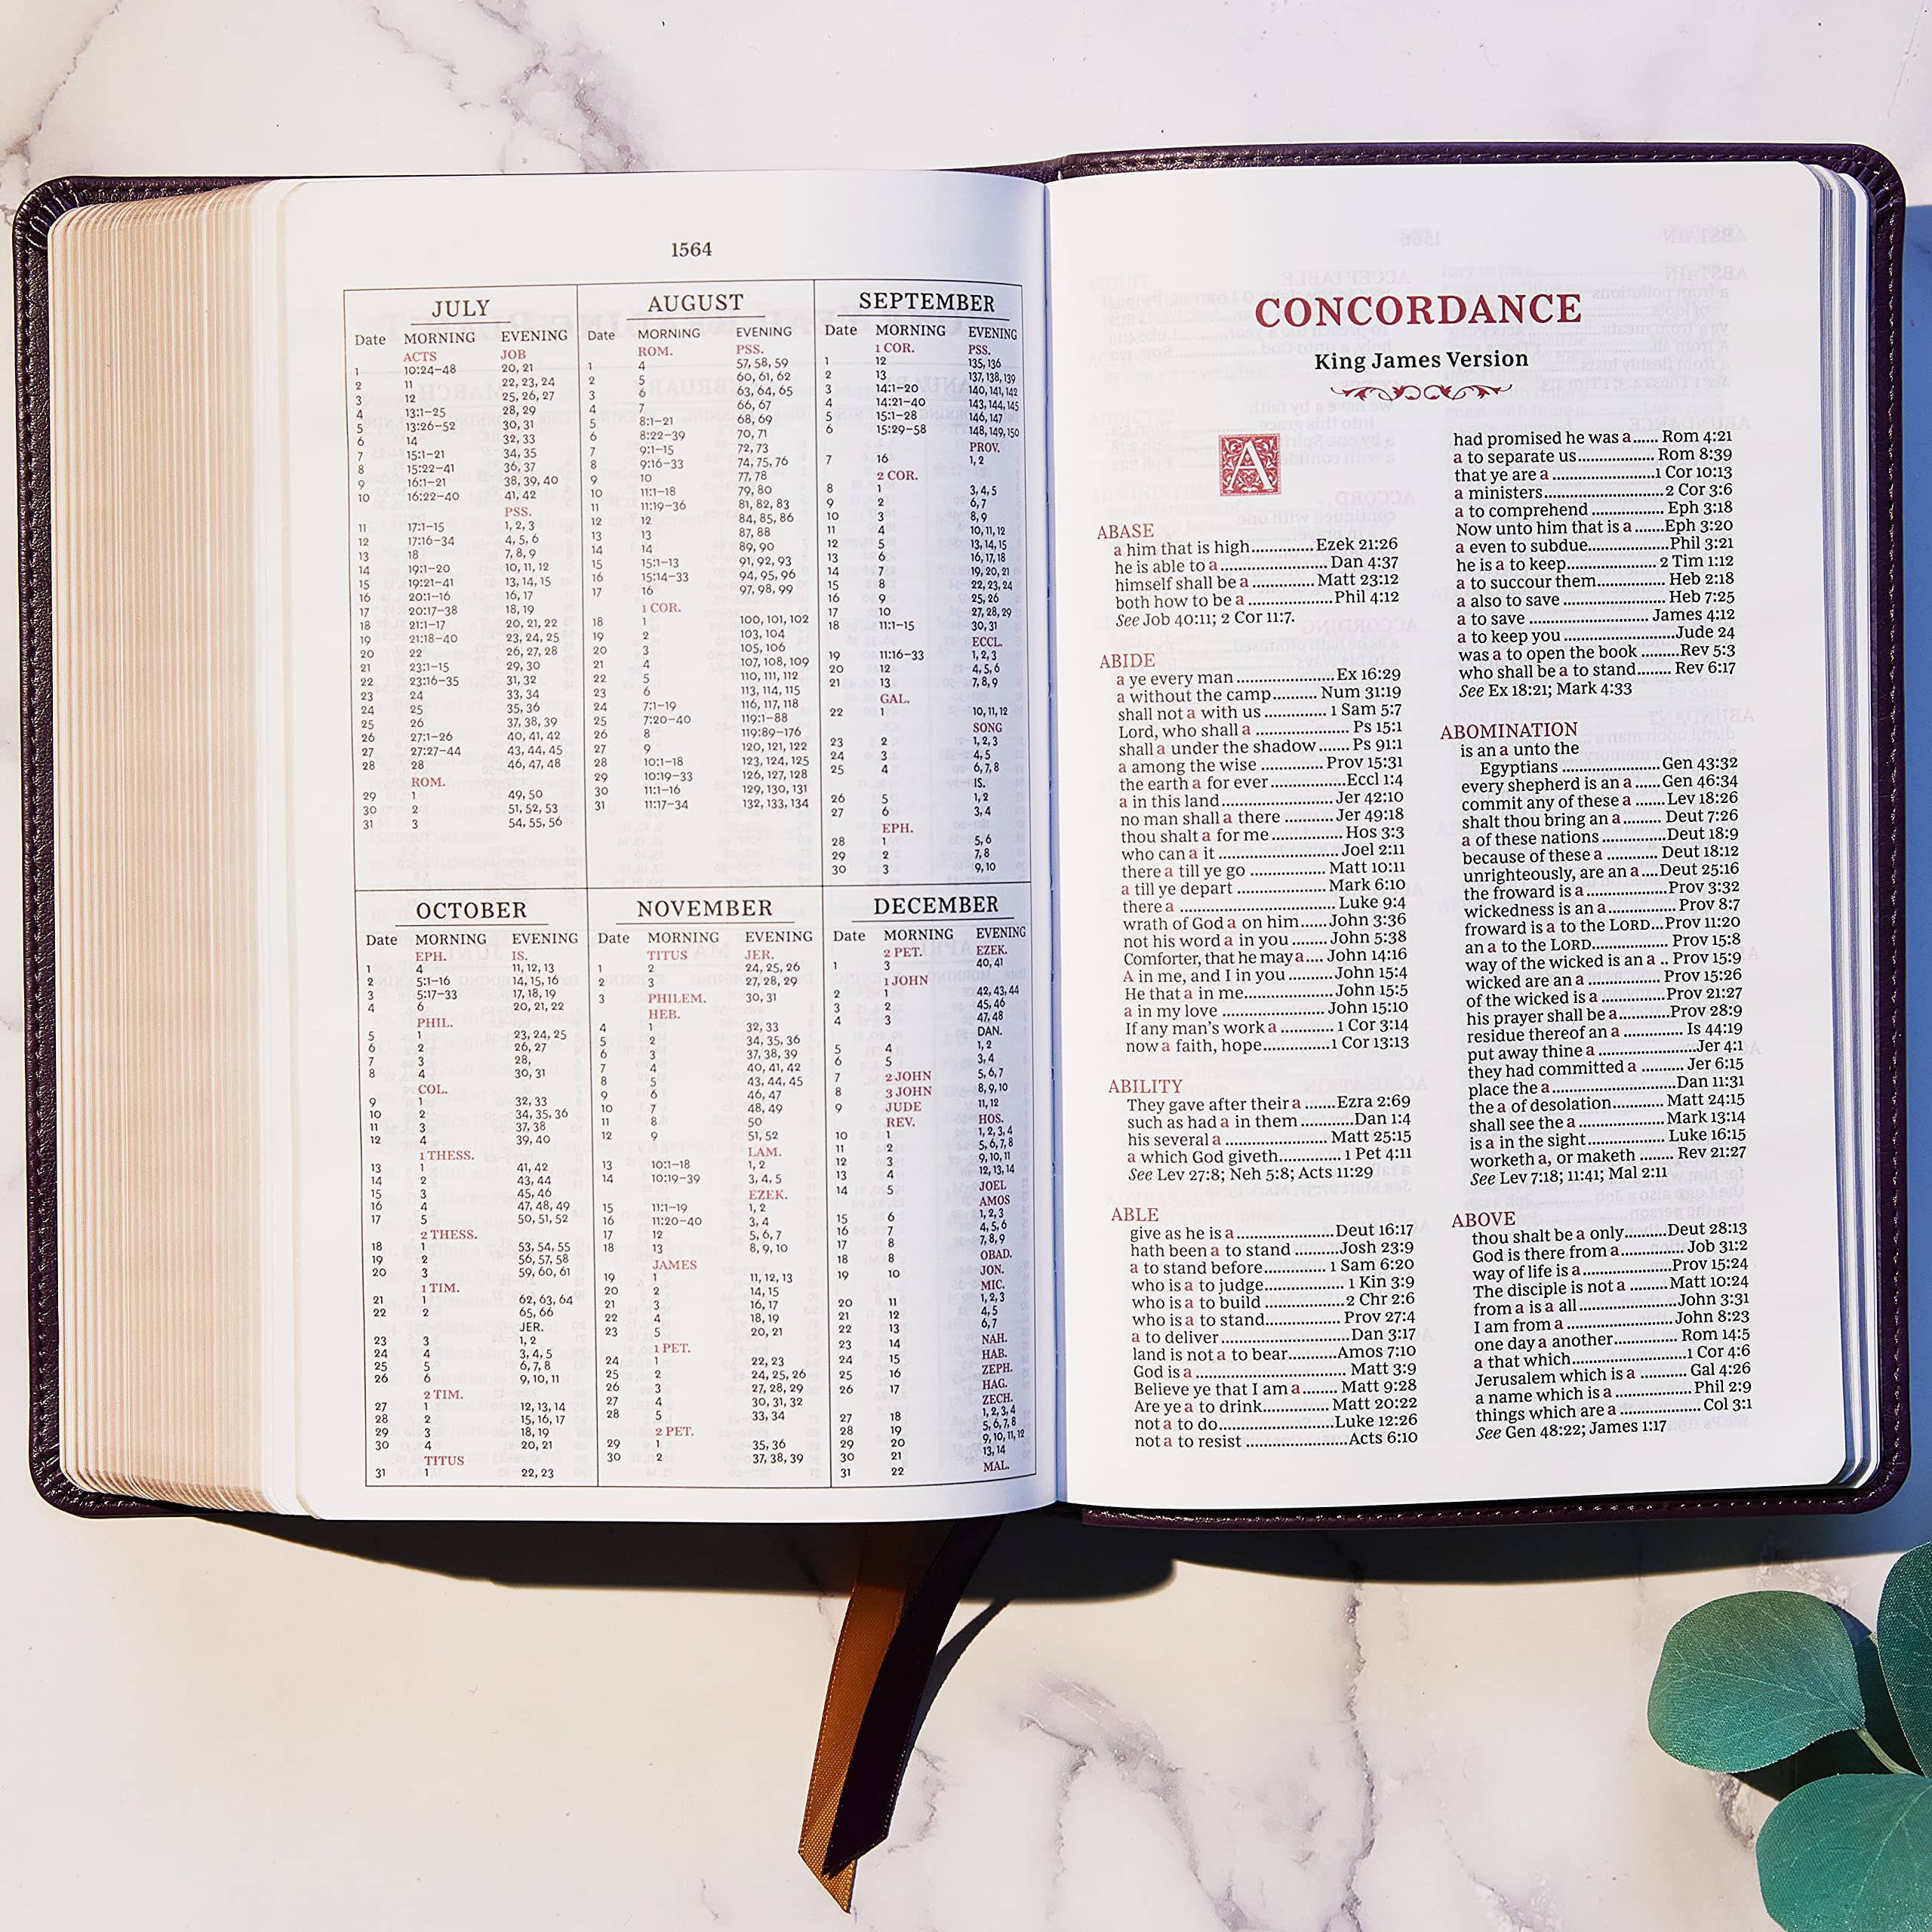 1564
JULY
Date MORNING EVENING
ACTS JOB
1 10:24–48 20, 21
2 11 22, 23, 24
3 12 25, 26, 27
4 13:1–25 28, 29
5 13:26–52 30, 31
6 14 32, 33
7 15:1–21 34, 35
8 15:22–41 36, 37
9 16:1–21 38, 39, 40
10 16:22–40 41, 42
PSS.
11 17:1–15 1, 2, 3
12 17:16–34 4, 5, 6
13 18 7, 8, 9
14 19:1–20 10, 11, 12
15 19:21–41 13, 14, 15
16 20:1–16 16, 17
17 20:17–38 18, 19
18 21:1–17 20, 21, 22
19 21:18–40 23, 24, 25
20 22 26, 27, 28
21 23:1–15 29, 30
22 23:16–35 31, 32
23 24 33, 34
24 25 35, 36
25 26 37, 38, 39
26 27:1–26 40, 41, 42
27 27:27–44 43, 44, 45
28 28 46, 47, 48
ROM.
29 1 49, 50
30 2 51, 52, 53
31 3 54, 55, 56
AUGUST
Date MORNING EVENING
ROM. PSS.
1 4 57, 58, 59
2 5 60, 61, 62
3 6 63, 64, 65
4 7 66, 67
5 8:1–21 68, 69
6 8:22–39 70, 71
7 9:1–15 72, 73
8 9:16–33 74, 75, 76
9 10 77, 78
10 11:1–18 79, 80
11 11:19–36 81, 82, 83
12 12 84, 85, 86
13 13 87, 88
14 14 89, 90
15 15:1–13 91, 92, 93
16 15:14–33 94, 95, 96
17 16 97, 98, 99
1 COR.
18 1 100, 101, 102
19 2 103, 104
20 3 105, 106
21 4 107, 108, 109
22 5 110, 111, 112
23 6 113, 114, 115
24 7:1–19 116, 117, 118
25 7:20–40 119:1–88
26 8 119:89–176
27 9 120, 121, 122
28 10:1–18 123, 124, 125
29 10:19–33 126, 127, 128
30 11:1–16 129, 130, 131
31 11:17–34 132, 133, 134
SEPTEMBER
Date MORNING EVENING
1 COR. PSS.
1 12 135, 136
2 13 137, 138, 139
3 14:1–20 140, 141, 142
4 14:21–40 143, 144, 145
5 15:1–28 146, 147
6 15:29–58 148, 149, 150
PROV.
7 16 1, 2
2 COR.
8 1 3, 4, 5
9 2 6, 7
10 3 8, 9
11 4 10, 11, 12
12 5 13, 14, 15
13 6 16, 17, 18
14 7 19, 20, 21
15 8 22, 23, 24
16 9 25, 26
17 10 27, 28, 29
18 11:1–15 30, 31
ECCL.
19 11:16–33 1, 2, 3
20 12 4, 5, 6
21 13 7, 8, 9
GAL.
22 1 10, 11, 12
SONG
23 2 1, 2, 3
24 3 4, 5
25 4 6, 7, 8
IS.
26 5 1, 2
27 6 3, 4
EPH.
28 1 5, 6
29 2 7, 8
30 3 9, 10
OCTOBER
Date MORNING EVENING
EPH. IS.
1 4 11, 12, 13
2 5:1–16 14, 15, 16
3 5:17–33 17, 18, 19
4 6 20, 21, 22
PHIL.
5 1 23, 24, 25
6 2 26, 27
7 3 28,
8 4 30, 31
COL.
9 1 32, 33
10 2 34, 35, 36
11 3 37, 38
12 4 39, 40
1 THESS.
13 1 41, 42
14 2 43, 44
15 3 45, 46
16 4 47, 48, 49
17 5 50, 51, 52
2 THESS.
18 1 53, 54, 55
19 2 56, 57, 58
20 3 59, 60, 61
1 TIM.
21 1 62, 63, 64
22 2 65, 66
JER.
23 3 1, 2
24 4 3, 4, 5
25 5 6, 7, 8
26 6 9, 10, 11
2 TIM.
27 1 12, 13, 14
28 2 15, 16, 17
29 3 18, 19
30 4 20, 21
TITUS
31 1 22, 23
NOVEMBER
Date MORNING EVENING
TITUS JER.
1 2 24, 25, 26
2 3 27, 28, 29
3 PHILEM. 30, 31
HEB.
4 1 32, 33
5 2 34, 35, 36
6 3 37, 38, 39
7 4 40, 41, 42
8 5 43, 44, 45
9 6 46, 47
10 7 48, 49
11 8 50
12 9 51, 52
LAM.
13 10:1–18 1, 2
14 10:19–39 3, 4, 5
EZEK.
15 11:1–19 1, 2
16 11:20–40 3, 4
17 12 5, 6, 7
18 13 8, 9, 10
JAMES
19 1 11, 12, 13
20 2 14, 15
21 3 16, 17
22 4 18, 19
23 5 20, 21
1 PET.
24 1 22, 23
25 2 24, 25, 26
26 3 27, 28, 29
27 4 30, 31, 32
28 5 33, 34
2 PET.
29 1 35, 36
30 2 37, 38, 39
DECEMBER
Date MORNING EVENING
2 PET. EZEK.
1 3 40, 41
1 JOHN
2 1 42, 43, 44
3 2 45, 46
4 3 47, 48
DAN.
5 4 1, 2
6 5 3, 4
7 2 JOHN 5, 6, 7
8 3 JOHN 8, 9, 10
9 JUDE 11, 12
REV. HOS.
10 1 1, 2, 3, 4
11 2 5, 6, 7, 8
12 3 9, 10, 11
13 4 12, 13, 14
14 5 JOEL
AMOS
15 6 1, 2, 3
16 7 4, 5, 6
17 8 7, 8, 9
18 8 OBAD.
19 10 JON.
MIC.
20 11 1, 2, 3
21 12 4, 5
22 13 6, 7
23 14 NAH.
24 15 HAB.
25 16 ZEPH.
26 17 HAG.
ZECH.
27 18 1, 2, 3, 4
28 19 5, 6, 7, 8
29 20 9, 10, 11, 12
30 21 13, 14
31 22 MAL.
CONCORDANCE
King James Version
A
ABASE
a him that is high.............Ezek 21:26
he is able to a ....................... Dan 4:37
himself shall be a ............. Matt 23:12
both how to be a ..................Phil 4:12
See Job 40:11; 2 Cor 11:7.
ABIDE
a ye every man ......................Ex 16:29
a without the camp.......... Num 31:19
shall not a with us ............. 1 Sam 5:7
Lord, who shall a .................... Ps 15:1
shall a under the shadow....... Ps 91:1
a among the wise ............. Prov 15:31
the earth a for ever ................Eccl 1:4
a in this land........................Jer 42:10
no man shall a there ........... Jer 49:18
thou shalt a for me ............... Hos 3:3
who can a it ......................... Joel 2:11
there a till ye go ................. Matt 10:11
a till ye depart ................... Mark 6:10
there a ................................. Luke 9:4
wrath of God a on him...... John 3:36
not his word a in you ........ John 5:38
Comforter, that he may a.... John 14:16
A in me, and I in you ......... John 15:4
He that a in me...................John 15:5
a in my love ...................... John 15:10
If any man's work a ........... 1 Cor 3:14
now a faith, hope...............1 Cor 13:13
ABILITY
They gave after their a .......Ezra 2:69
such as had a in them ............Dan 1:4
his several a ..................... Matt 25:15
a which God giveth............. 1 Pet 4:11
See Lev 27:8; Neh 5:8; Acts 11:29
ABLE
give as he is a.....................Deut 16:17
hath been a to stand ..........Josh 23:9
a to stand before............... 1 Sam 6:20
who is a to judge...................1 Kin 3:9
who is a to build ...................2 Chr 2:6
who is a to stand................Prov 27:4
a to deliver............................Dan 3:17
land is not a to bear...........Amos 7:10
God is a ............................... Matt 3:9
Believe ye that I am a....... Matt 9:28
Are ye a to drink............. Matt 20:22
not a to do........................Luke 12:26
not a to resist ......................Acts 6:10
had promised he was a...... Rom 4:21
a to separate us................ Rom 8:39
that ye are a .....................1 Cor 10:13
a ministers..........................2 Cor 3:6
a to comprehend ............... Eph 3:18
Now unto him that is a ......Eph 3:20
a even to subdue................Phil 3:21
he is a to keep.................. 2 Tim 1:12
a to succour them.............. Heb 2:18
a also to save ...................... Heb 7:25
a to save ........................... James 4:12
a to keep you .........................Jude 24
was a to open the book .........Rev 5:3
who shall be a to stand....... Rev 6:17
See Ex 18:21; Mark 4:33
ABOMINATION
is an a unto the
Egyptians .......................Gen 43:32
every shepherd is an a ......Gen 46:34
commit any of these a .......Lev 18:26
shalt thou bring an a ......... Deut 7:26
a of these nations ..............Deut 18:9
because of these a ............ Deut 18:12
unrighteously, are an a....Deut 25:16
the froward is a .................Prov 3:32
wickedness is an a............... Prov 8:7
froward is a to the LORD...Prov 11:20
an a to the LORD................. Prov 15:8
way of the wicked is an a .. Prov 15:9
wicked are an a ................ Prov 15:26
of the wicked is a ............. Prov 21:27
his prayer shall be a............Prov 28:9
residue thereof an a ............. Is 44:19
put away thine a .......................Jer 4:1
they had committed a .......... Jer 6:15
place the a ...........................Dan 11:31
the a of desolation............ Matt 24:15
shall see the a ..................Mark 13:14
is a in the sight.................. Luke 16:15
worketh a, or maketh ........ Rev 21:27
See Lev 7:18; 11:41; Mal 2:11
ABOVE
thou shalt be a only.........Deut 28:13
God is there from a.............. Job 31:2
way of life is a ...................Prov 15:24
The disciple is not a ........ Matt 10:24
from a is a all .....................John 3:31
I am from a ......................... John 8:23
one day a another.............. Rom 14:5
a that which.......................1 Cor 4:6
Jerusalem which is a .......... Gal 4:26
a name which is a ................ Phil 2:9
things which are a ................. Col 3:1
See Gen 48:22; James 1:17